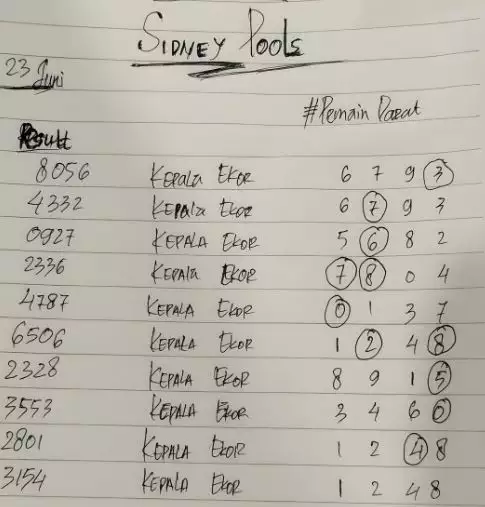 SIDNEY Pools
23 Juni
#Pemain Pasat
Result
8056 KEPALA EKOR 6 7 9 3
4332 KEPALA EKOR 6 7 9 3
0927 KEPALA EKOR 5 6 8 2
2336 KEPALA EKOR 7 8 0 4
4787 KEPALA EKOR 0 1 3 7
6506 KEPALA EKOR 1 2 4 8
2328 KEPALA EKOR 8 9 1 5
3553 KEPALA EKOR 3 4 6 0
2801 KEPALA EKOR 1 2 4 8
3154 KEPALA EKOR 1 2 4 8